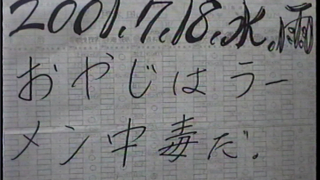 2001.7.18.水.雨
おやじはラー
メン中毒だ.